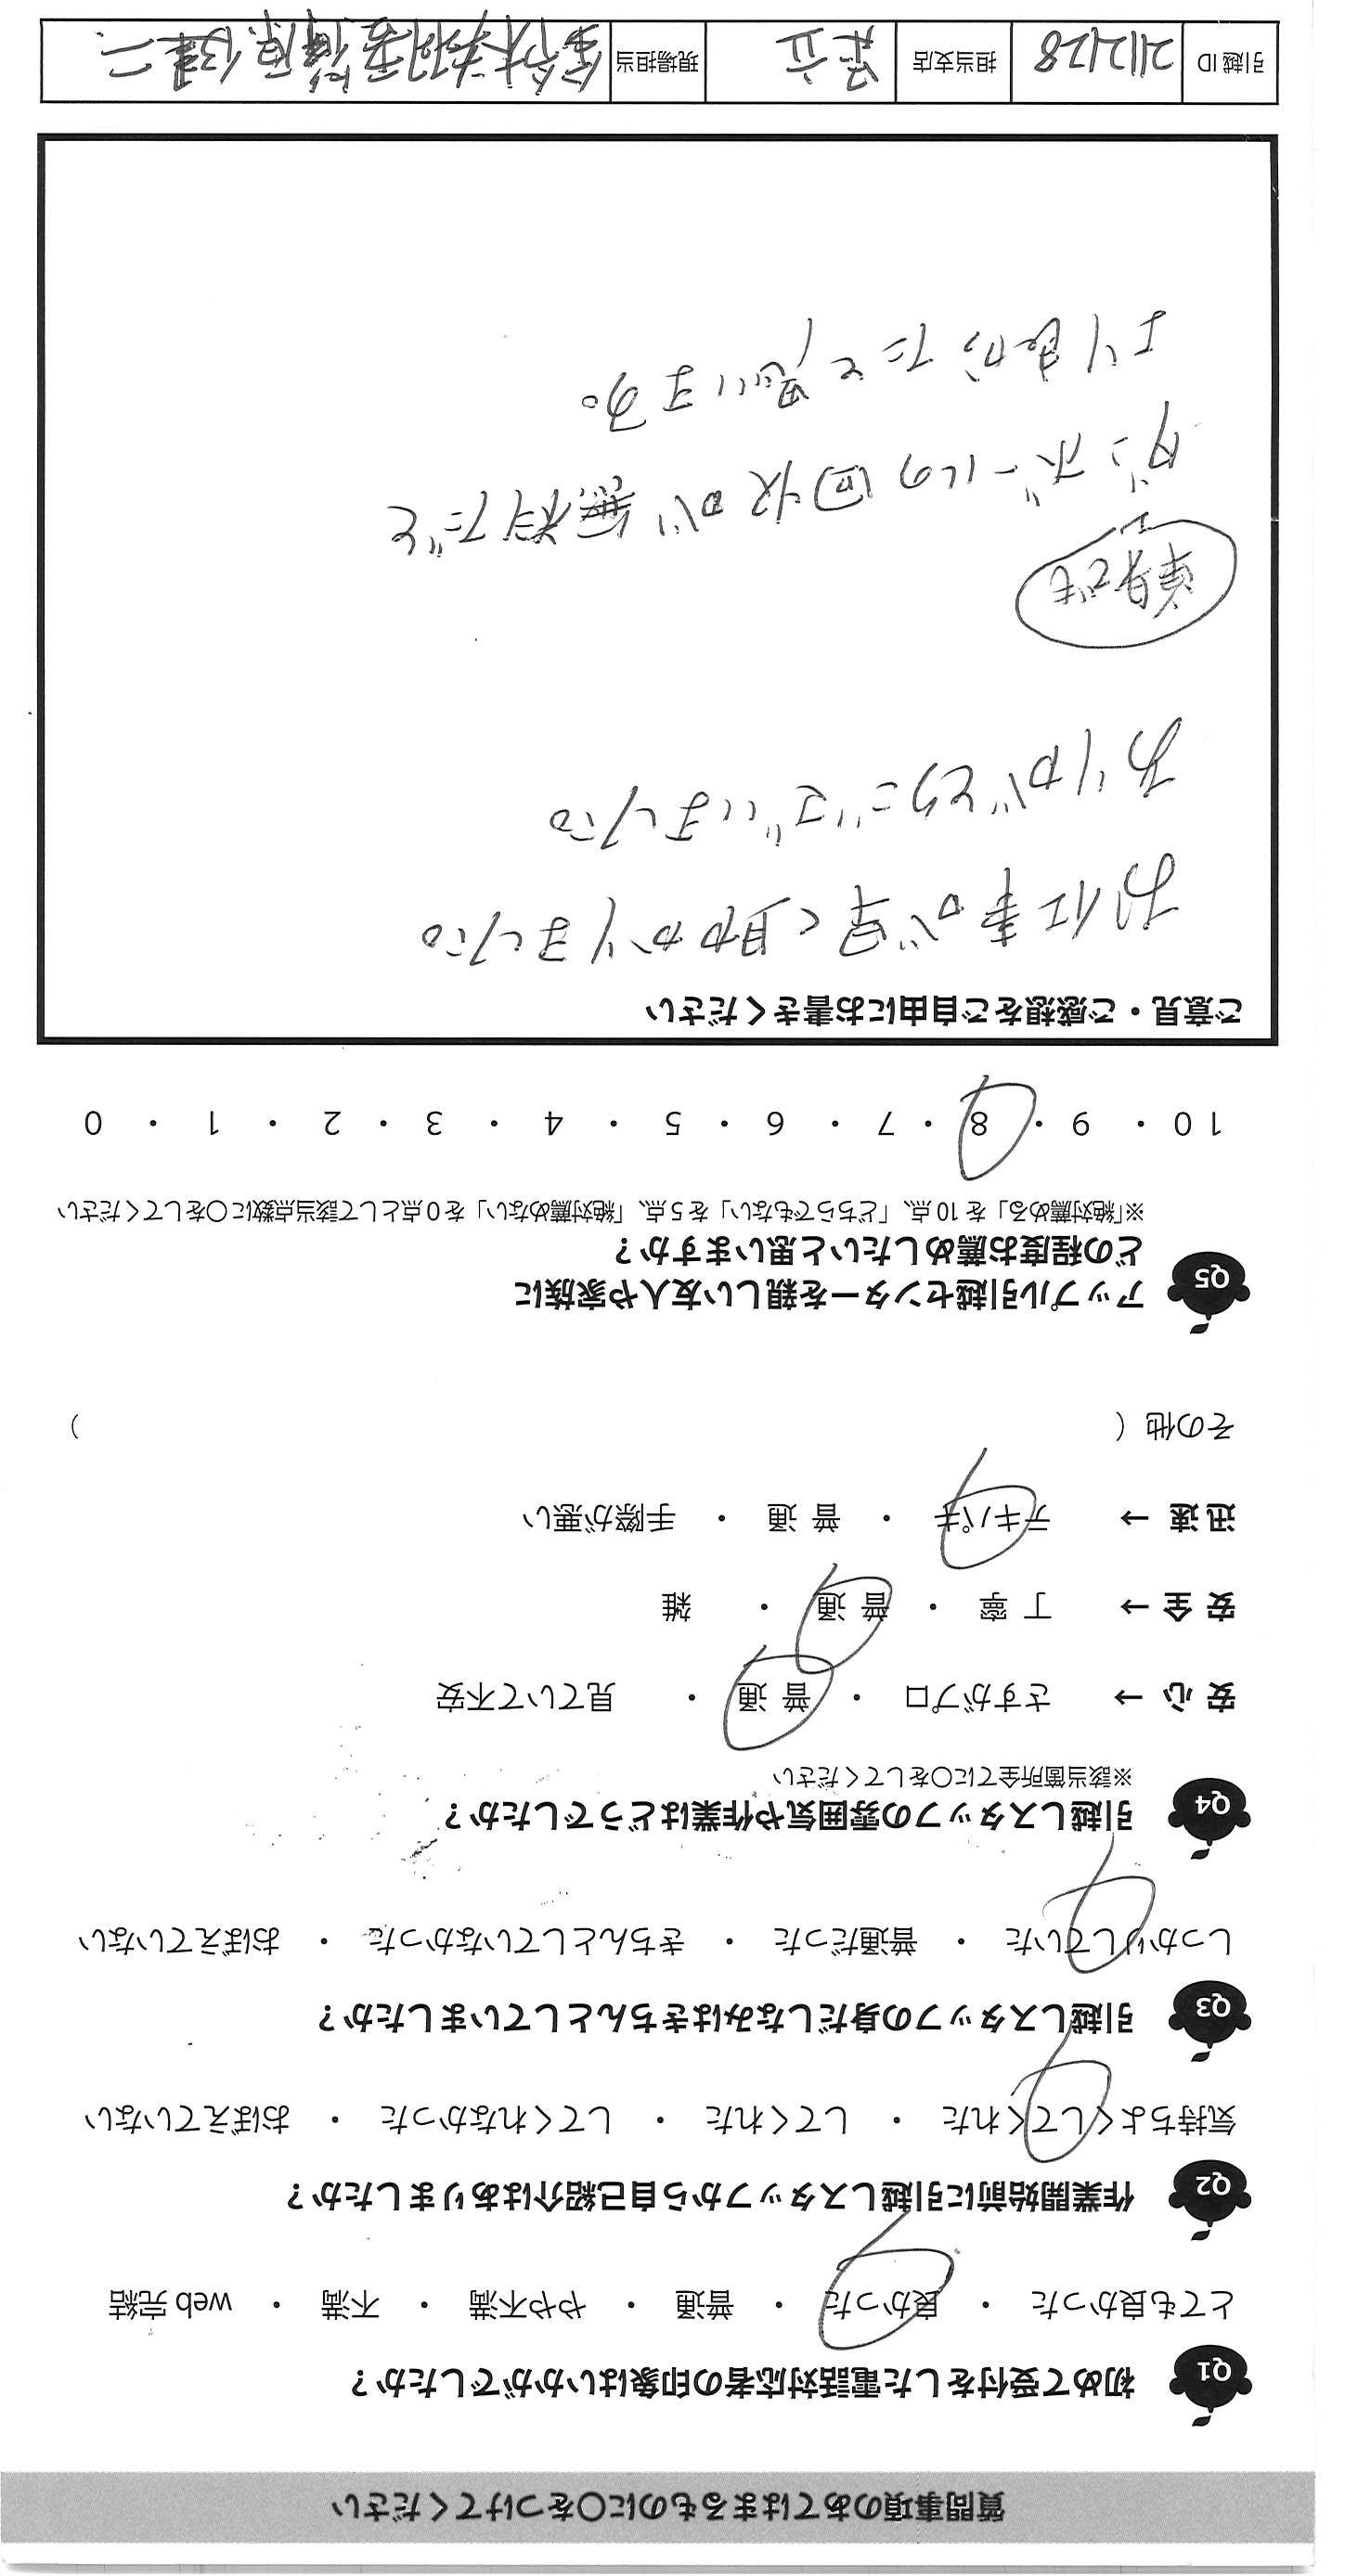 質問事項のあてはまるものに○をつけてください
Q1 初めて受付をした電話対応者の印象はいかがでしたか？
とても良かった ・ 良かった ・ 普通 ・ やや不満 ・ 不満 ・ web 完結
Q2 作業開始前に引越しスタッフから自己紹介はありましたか？
気持ちよくしてくれた ・ してくれた ・ してくれなかった ・ おぼえていない
Q3 引越しスタッフの身だしなみはきちんとしていましたか？
しっかりしていた ・ 普通だった ・ きちんとしていなかった ・ おぼえていない
Q4 引越しスタッフの雰囲気や作業はどうでしたか？
※該当箇所全てに○をしてください
安 心 → さすがプロ ・ 普 通 ・ 見ていて不安
安 全 → 丁 寧 ・ 普 通 ・ 雑
迅 速 → テキパキ ・ 普 通 ・ 手際が悪い
その他（ ）
Q5 アップル引越センターを親しい友人や家族に
どの程度お薦めしたいと思いますか？
※「絶対薦める」を 10 点、「どちらでもない」を 5 点、「絶対薦めない」を 0 点として該当点数に○をしてください
10 ・ 9 ・ 8 ・ 7 ・ 6 ・ 5 ・ 4 ・ 3 ・ 2 ・ 1 ・ 0
ご意見・ご感想をご自由にお書きください
お仕事が早く助かりました。
ありがとうございました。
単身でも
ダンボールの回収が無料だと
より良かったと思います。
引越 ID 2112128 担当支店 足立 現場担当 鈴木 原 健二